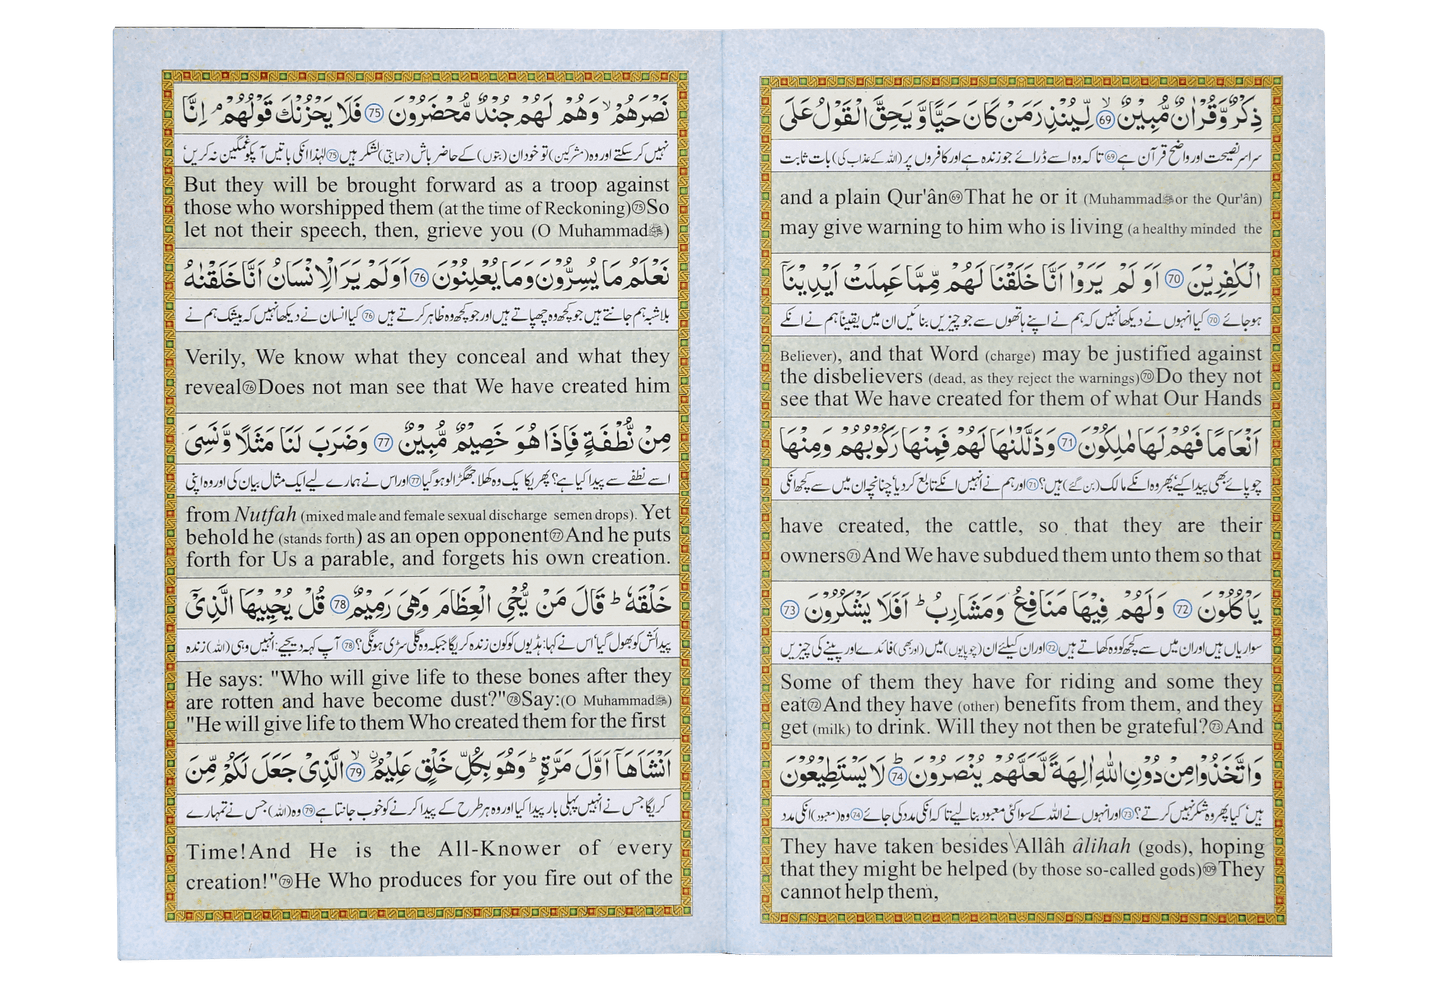 ذِكْرٌ وَّقُرْاٰنٌ مُّبِيْنٌ ۙ 69 لِّيُنْذِرَ مَنْ كَانَ حَيًّا وَّ يَحِقَّ الْقَوْلُ عَلَى
سراسر نصیحت اور واضح قرآن ہے 69 تاکہ وہ اسے ڈرائے جو زندہ ہے اور کافروں پر (اللہ کے عذاب کی) بات ثابت
and a plain Qur'ân 69 That he or it (Muhammad ﷺ or the Qur'ân)
may give warning to him who is living (a healthy minded the
الْكٰفِرِيْنَ 70 اَوَ لَمْ يَرَوْا اَنَّا خَلَقْنَا لَهُمْ مِّمَّا عَمِلَتْ اَيْدِيْنَاۤ
ہو جائے 70 کیا انہوں نے دیکھا نہیں کہ ہم نے اپنے ہاتھوں سے جو چیزیں بنائیں ان میں یقیناً ہم نے انکے
Believer), and that Word (charge) may be justified against
the disbelievers (dead, as they reject the warnings) 70 Do they not
see that We have created for them of what Our Hands
اَنْعَامًا فَهُمْ لَهَا مٰلِكُوْنَ 71 وَذَلَّلْنٰهَا لَهُمْ فَمِنْهَا رَكُوْبُهُمْ وَمِنْهَا
چوپائے بھی پیدا کیے پھر وہ انکے مالک (بن گئے) ہیں؟ 71 اور ہم نے انہیں انکے تابع کر دیا چنانچہ ان میں سے کچھ انکی
have created, the cattle, so that they are their
owners 71 And We have subdued them unto them so that
يَاْكُلُوْنَ 72 وَلَهُمْ فِيْهَا مَنَافِعُ وَمَشَارِبُ ؕ اَفَلَا يَشْكُرُوْنَ 73
سواریاں ہیں اور ان میں سے کچھ کو وہ کھاتے ہیں 72 اور ان کیلئے ان (چوپایوں) میں (اور بھی) فائدے اور پینے کی چیزیں
Some of them they have for riding and some they
eat 72 And they have (other) benefits from them, and they
get (milk) to drink. Will they not then be grateful? 73 And
وَاتَّخَذُوْا مِنْ دُوْنِ اللّٰهِ اٰلِهَةً لَّعَلَّهُمْ يُنْصَرُوْنَ ؕ 74 لَا يَسْتَطِيْعُوْنَ
ہیں کیا پھر وہ شکر نہیں کرتے؟ 73 اور انہوں نے اللہ کے سوا کئی معبود بنا لیے تاکہ انکی مدد کی جائے 74 وہ (معبود) انکی مدد
They have taken besides Allâh âlihah (gods), hoping
that they might be helped (by those so-called gods) 109 They
cannot help them,
نَصْرَهُمْ ۙ وَهُمْ لَهُمْ جُنْدٌ مُّحْضَرُوْنَ 75 فَلَا يَحْزُنْكَ قَوْلُهُمْ ۘ اِنَّا
نہیں کر سکتے اور وہ (مشرکین) تو خود ان (بتوں) کے حاضر باش (حمایتی) لشکر ہیں 75 لہٰذا انکی باتیں آپکو غمگین نہ کریں
But they will be brought forward as a troop against
those who worshipped them (at the time of Reckoning) 75 So
let not their speech, then, grieve you (O Muhammad ﷺ)
نَعْلَمُ مَا يُسِرُّوْنَ وَمَا يُعْلِنُوْنَ 76 اَوَلَمْ يَرَ الْاِنْسَانُ اَنَّا خَلَقْنٰهُ
بلاشبہ ہم جانتے ہیں جو کچھ وہ چھپاتے ہیں اور جو کچھ وہ ظاہر کرتے ہیں 76 کیا انسان نے دیکھا نہیں کہ بیشک ہم نے
Verily, We know what they conceal and what they
reveal 76 Does not man see that We have created him
مِنْ نُّطْفَةٍ فَاِذَا هُوَ خَصِيْمٌ مُّبِيْنٌ 77 وَضَرَبَ لَنَا مَثَلًا وَّنَسِيَ
اسے نطفے سے پیدا کیا ہے؟ پھر یکایک وہ کھلا جھگڑالو ہو گیا 77 اور اس نے ہمارے لیے ایک مثال بیان کی اور وہ اپنی
from Nutfah (mixed male and female sexual discharge semen drops). Yet
behold he (stands forth) as an open opponent 77 And he puts
forth for Us a parable, and forgets his own creation.
خَلْقَهٗ ؕ قَالَ مَنْ يُّحْيِ الْعِظَامَ وَهِيَ رَمِيْمٌ 78 قُلْ يُحْيِيْهَا الَّذِيْۤ
پیدائش کو بھول گیا اس نے کہا: ہڈیوں کو کون زندہ کریگا جبکہ وہ گلی سڑی ہونگی؟ 78 آپ کہہ دیجیے: انہیں وہی (اللہ) زندہ
He says: "Who will give life to these bones after they
are rotten and have become dust?" 78 Say:(O Muhammad ﷺ)
"He will give life to them Who created them for the first
اَنْشَاَهَاۤ اَوَّلَ مَرَّةٍ ؕ وَهُوَ بِكُلِّ خَلْقٍ عَلِيْمٌ ۙ 79 الَّذِيْ جَعَلَ لَكُمْ مِّنَ
کریگا جس نے انہیں پہلی بار پیدا کیا اور وہ ہر طرح کے پیدا کرنے کو خوب جانتا ہے 79 وہ (اللہ) جس نے تمہارے
Time! And He is the All-Knower of every
creation!" 79 He Who produces for you fire out of the